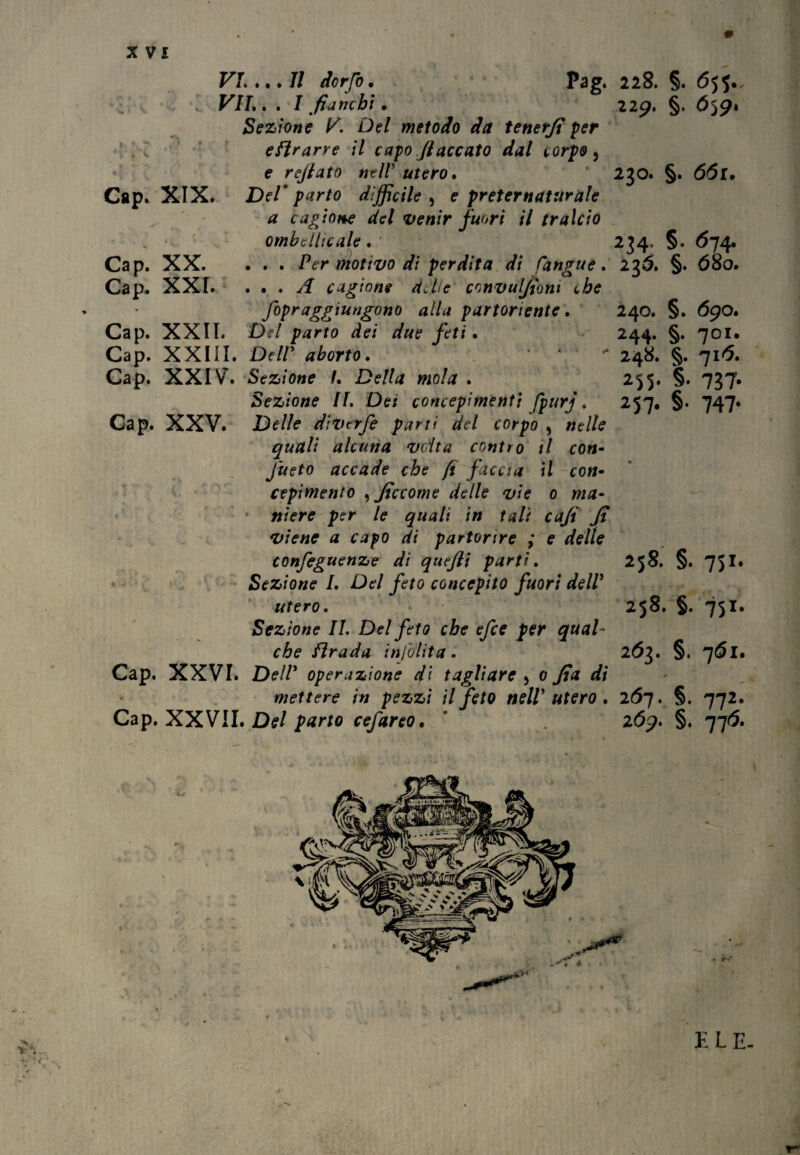 XVI
VI. . . . Il dorſo. Pag. 228. §. 655.
VII. . . I fianchi. 229. §. 659.
Sezione V. Del metodo da tenerſi per
eſtrarre il capo ſtaccato dal corpo,
e reſtato nell' utero. 230. §. 661.
Cap. XIX. Del parto difficile, e preternaturale
a cagione del venir fuori il tralcio
ombellicale. 234. §. 674.
Cap. XX. . . . Per motivo di perdita di ſangue. 236. §. 680.
Cap. XXI. . . . A cagione delle convulſioni che
ſopraggiungono alla partoriente. 240. §. 690.
Cap. XXII. Del parto dei due feti. 244. §. 701.
Cap. XXIII. Dell' aborto. 248. §. 716.
Cap. XXIV. Sezione I. Della mola. 255. §. 737.
Sezione II. Dei concepimenti ſpurj. 257. §. 747.
Cap. XXV. Delle diverſe parti del corpo, nelle
quali alcuna volta contro il con-
ſueto accade che ſi faccia il con-
cepimento, ſiccome delle vie o ma-
niere per le quali in tali caſi ſi
viene a capo di partorire; e delle
conſeguenze di queſti parti. 258. §. 751.
Sezione I. Del feto concepito fuori dell'
utero. 258. §. 751.
Sezione II. Del feto che eſce per qual-
che ſtrada inſolita. 263. §. 761.
Cap. XXVI. Dell' operazione di tagliare, o ſia di
mettere in pezzi il feto nell' utero. 267. §. 772.
Cap. XXVII. Del parto ceſareo. 269. §. 776.
ELE-